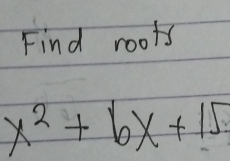 Find roots
x² + 6x + 15